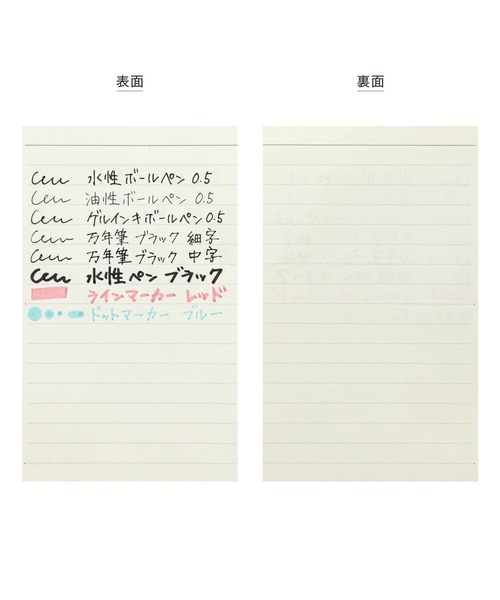 表面
裏面
水性ボールペン 0.5
油性ボールペン 0.5
ゲルインキボールペン 0.5
万年筆 ブラック 細字
万年筆 ブラック 中字
水性ペン ブラック
ラインマーカー レッド
ドットマーカー ブルー